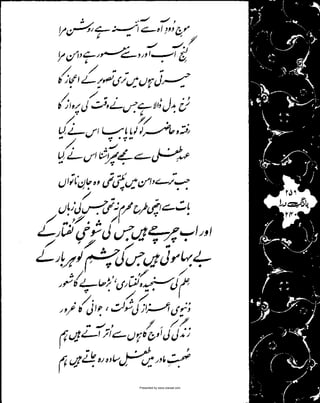 موجِ دُودِ آہ سے آئینہ ہے روشن مرا
گنجِ آب آورد سے معمور ہے دامن مرا
حیرتی ہوں میں تری تصویر کے اعجاز کا
رُخ بدل ڈالا ہے جس نے وقت کی پرواز کا
رفتہ و حاضر کو گویا پا بپا اس نے کیا
عہدِ طفلی سے مجھے پھر آشنا اس نے کیا
جب ترے دامن میں پلتی تھی وہ جانِ ناتواں
بات سے اچھی طرح محرم نہ تھی جس کی زباں
اور اب چرچے ہیں جس کی شوخیِ گفتار کے
بے بہا موتی ہیں جس کی چشمِ گوہر بار کے
علم کی سنجیدہ گفتاری، بڑھاپے کا شعور
دنیوی اعزاز کی شوکت، جوانی کا غرور
زندگی کی اوج گاہوں سے اُتر آتے ہیں ہم
صحبتِ مادر میں طفلِ سادہ رہ جاتے ہیں ہم
بانگِ درا